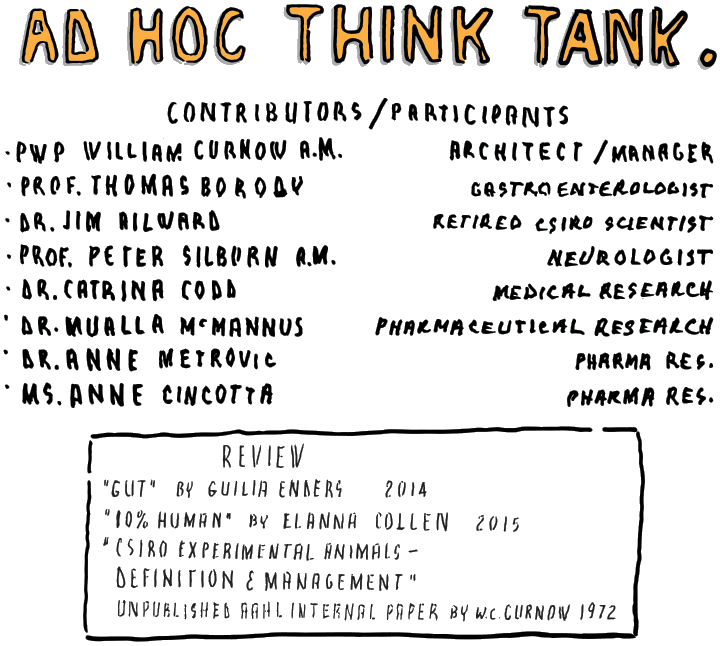 AD HOC THINK TANK.
CONTRIBUTORS/PARTICIPANTS
· PWP WILLIAM CURNOW A.M. ARCHITECT/MANAGER
· PROF. THOMAS BORODY GASTROENTEROLOGIST
· DR. JIM AILWARD RETIRED CSIRO SCIENTIST
· PROF. PETER SILBURN A.M. NEUROLOGIST
· DR. CATRINA CODD MEDICAL RESEARCH
· DR. MUALLA McMANNUS PHARMACEUTICAL RESEARCH
· DR. ANNE METROVIC PHARMA RES.
· MS. ANNE CINCOTTA PHARMA RES.
REVIEW
"GUT" BY GUILIA ENDERS 2014
"10% HUMAN" BY ELANNA COLLEN 2015
"CSIRO EXPERIMENTAL ANIMALS –
DEFINITION & MANAGEMENT"
UNPUBLISHED AAHL INTERNAL PAPER BY W.C. CURNOW 1972